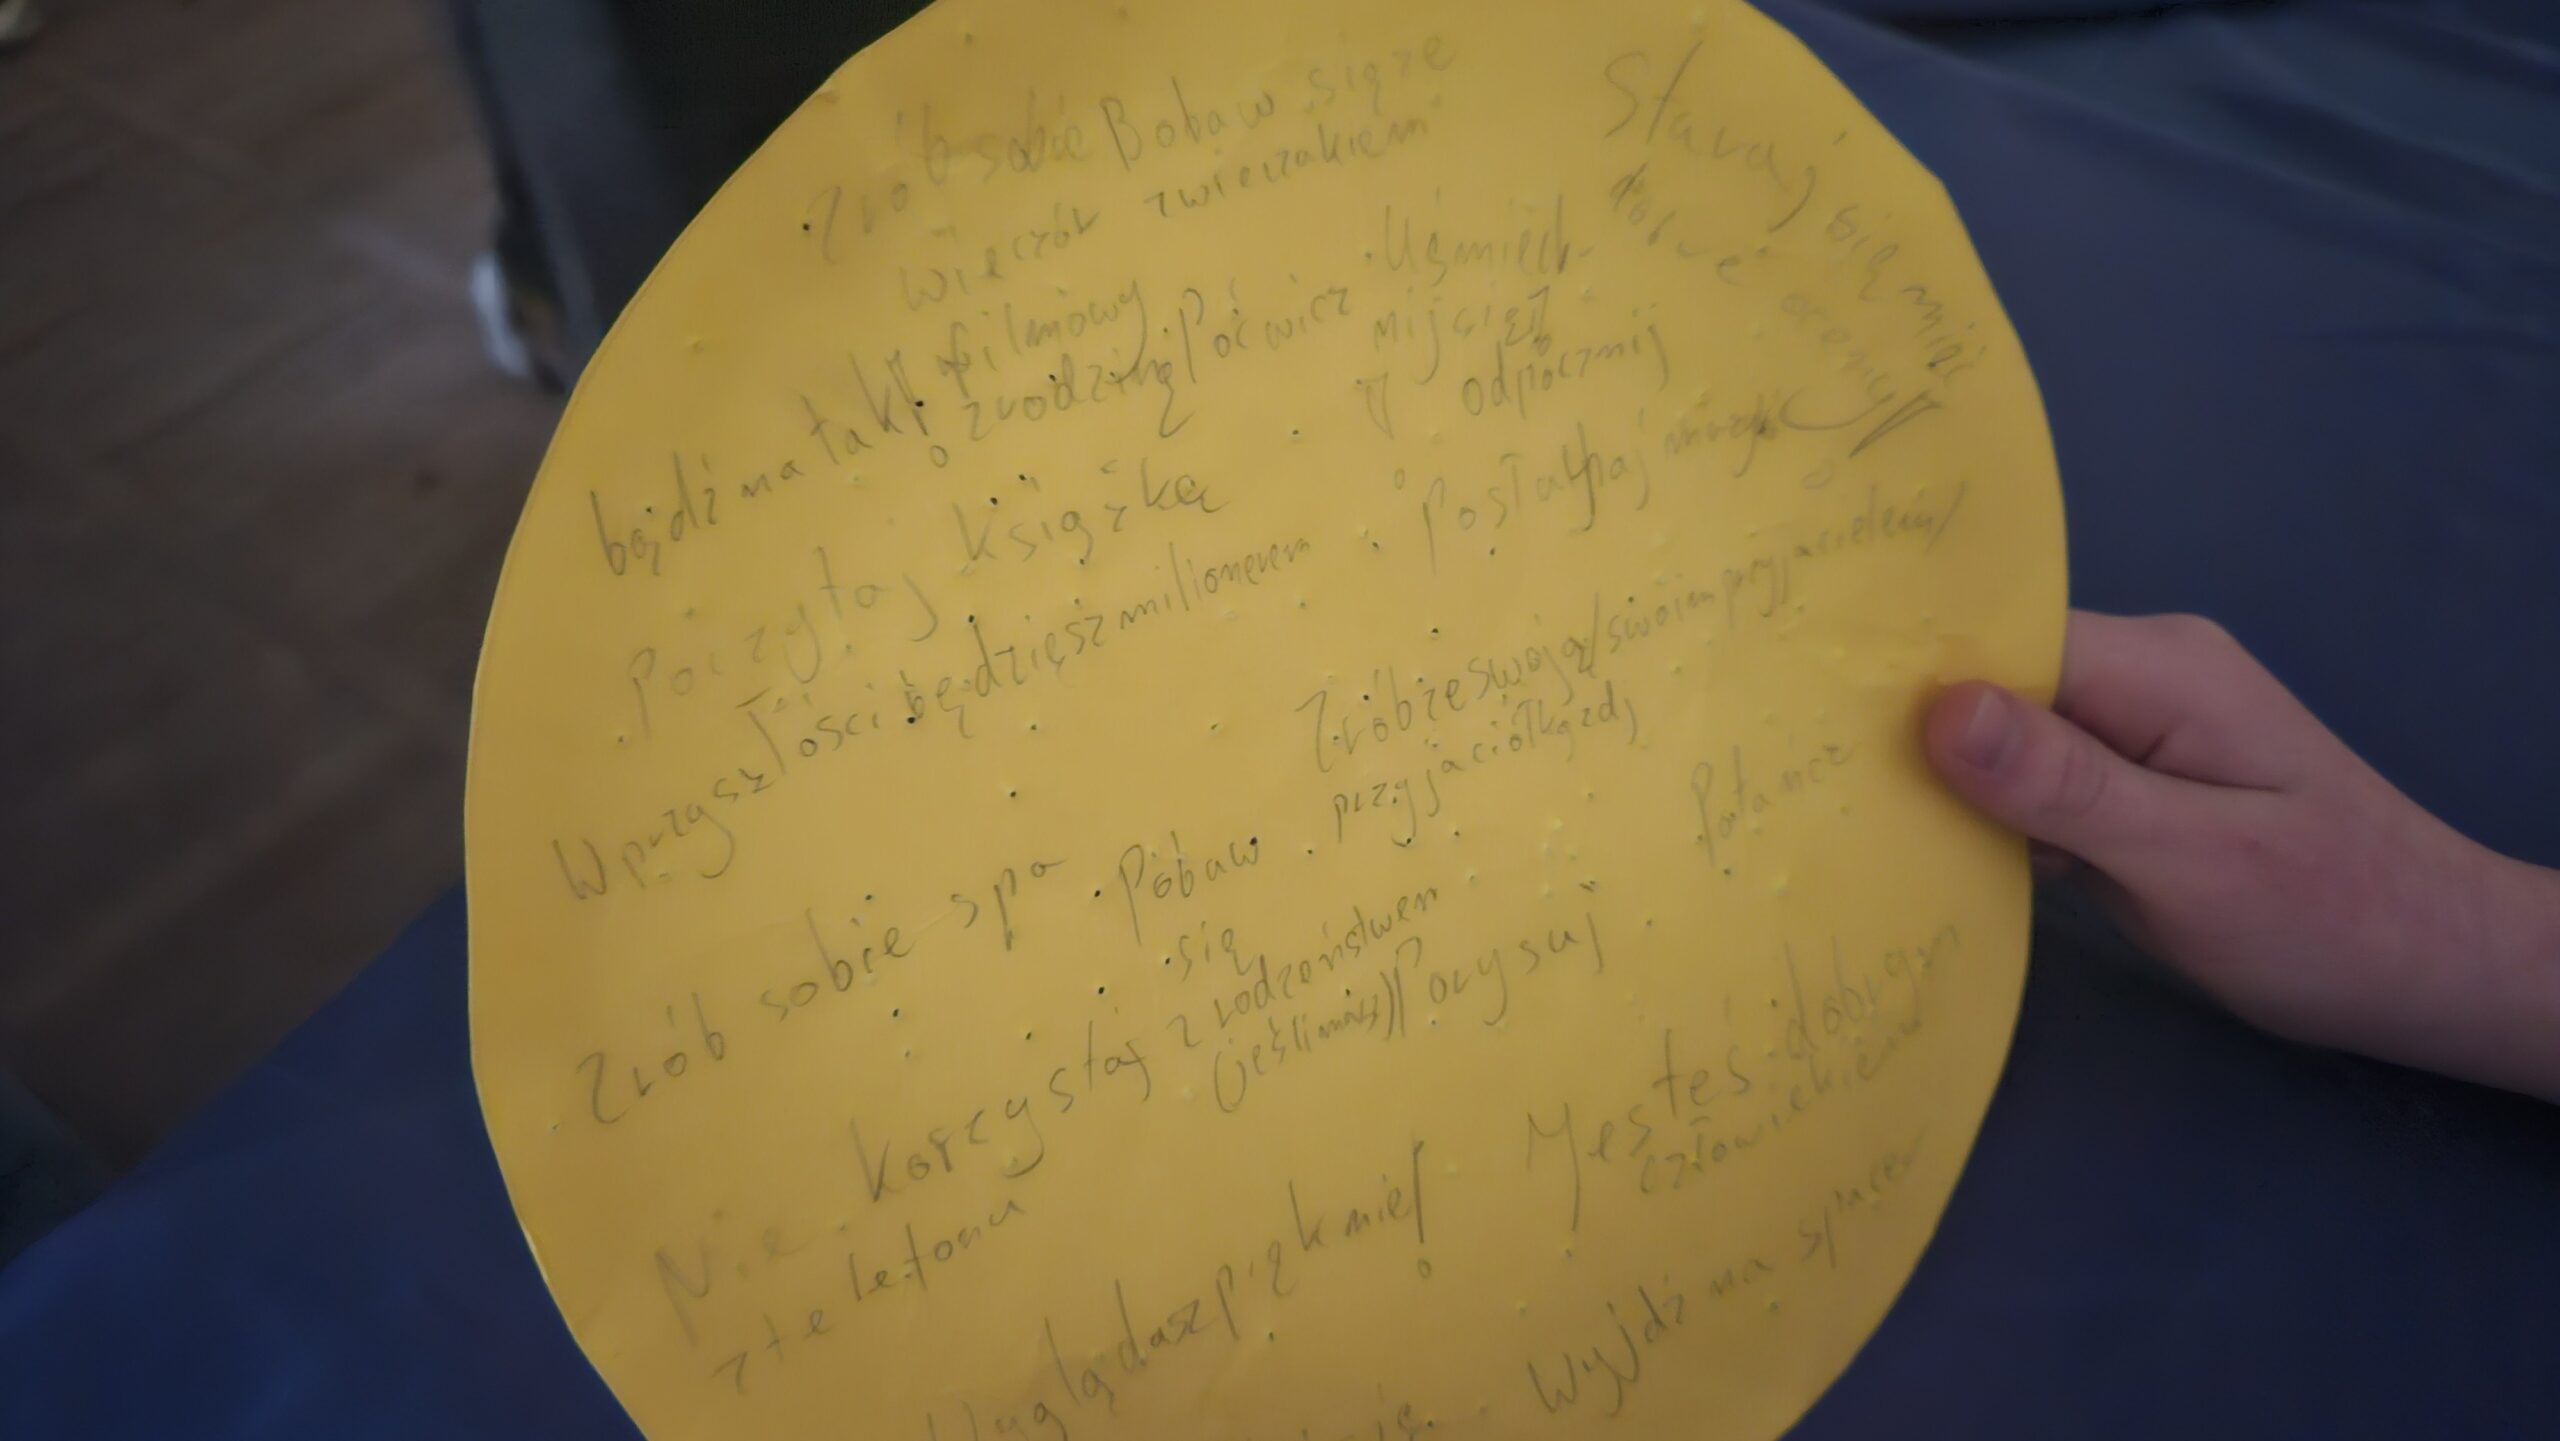 Zrób sobie
Bobaw się ze
zwierzakiem
wieczór
filmowy
z rodziną
Poćwicz
Uśmiech-
nij się!
Staraj się mieć
dobre oceny!
bądź na tak!
odpocznij
Poczytaj książkę
Posłuchaj muzyki
W przyszłości będziesz milionerem
Zrób ze swoją/swoim przyjacielem/
przyjaciółką zdj
Zrób sobie spa
Pobaw
się
z rodzeństwem
(jeśli masz)
Potańcz
Porysuj
Nie korzystaj
z telefonu
Jesteś dobrym
człowiekiem
Wyglądasz pięknie!
Wyjdź na spacer